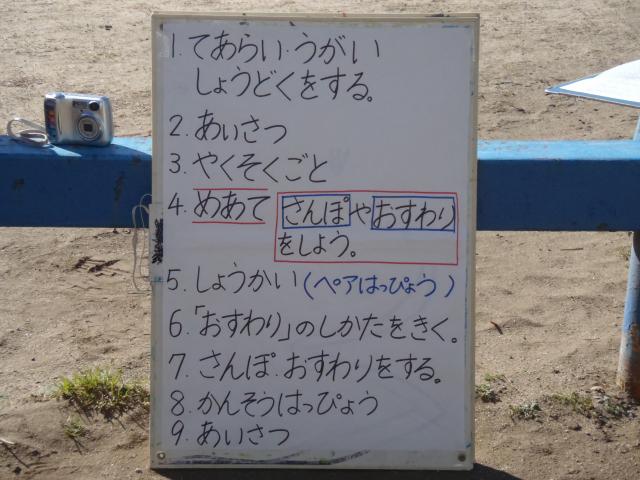 1. てあらい・うがい
しょうどくをする。
2. あいさつ
3. やくそくごと
4. めあて さんぽやおすわり
をしよう。
5. しょうかい(ペアはっぴょう)
6. 「おすわり」のしかたをきく。
7. さんぽ・おすわりをする。
8. かんそうはっぴょう
9. あいさつ